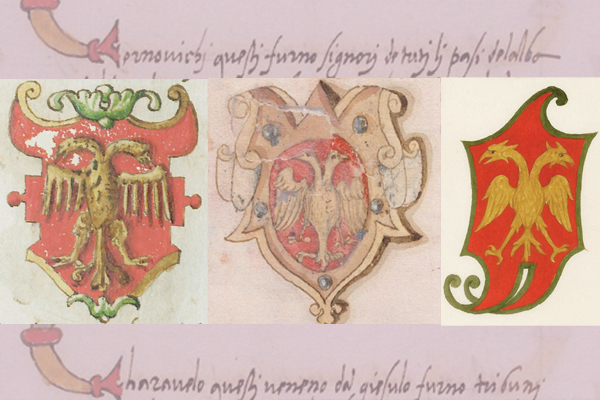 ornovichj questj furno signorj de tuti lj pasi delalbo
haravelo questj veneno da giesulo furno tribunj